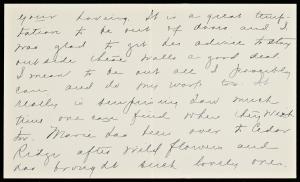 your having. It is a great temp-
tation to be out of doors and I
was glad to get her advice to stay
outside these walls a good deal.
I mean to be out all I possibly
can and do my work too. It
really is surprising how much
time one can find when they wish
to. Marie has been over to Cedar
Ridge after wild flowers and
has brought back lovely ones.